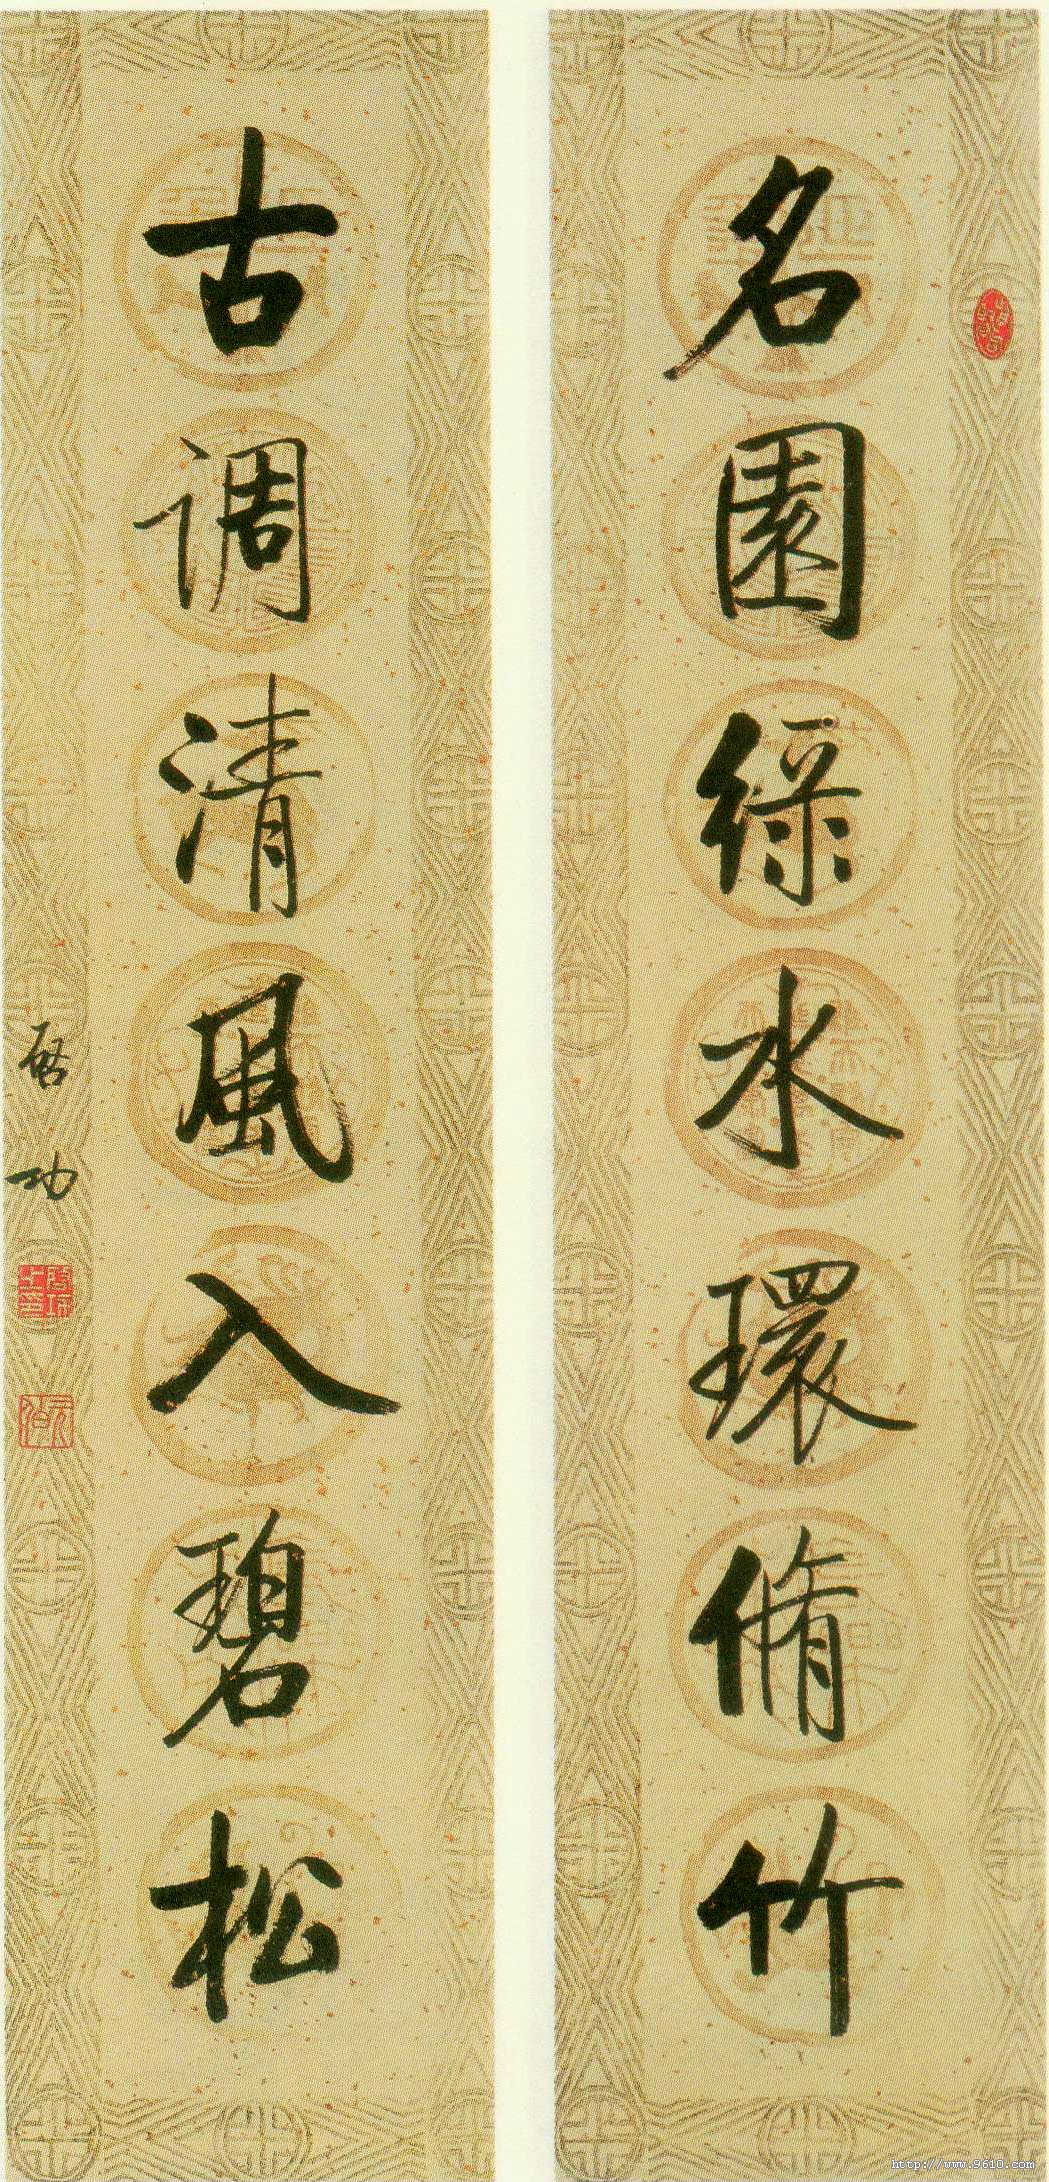 名園綠水環脩竹
古调清風入碧松
啓功
http://www.9610.com